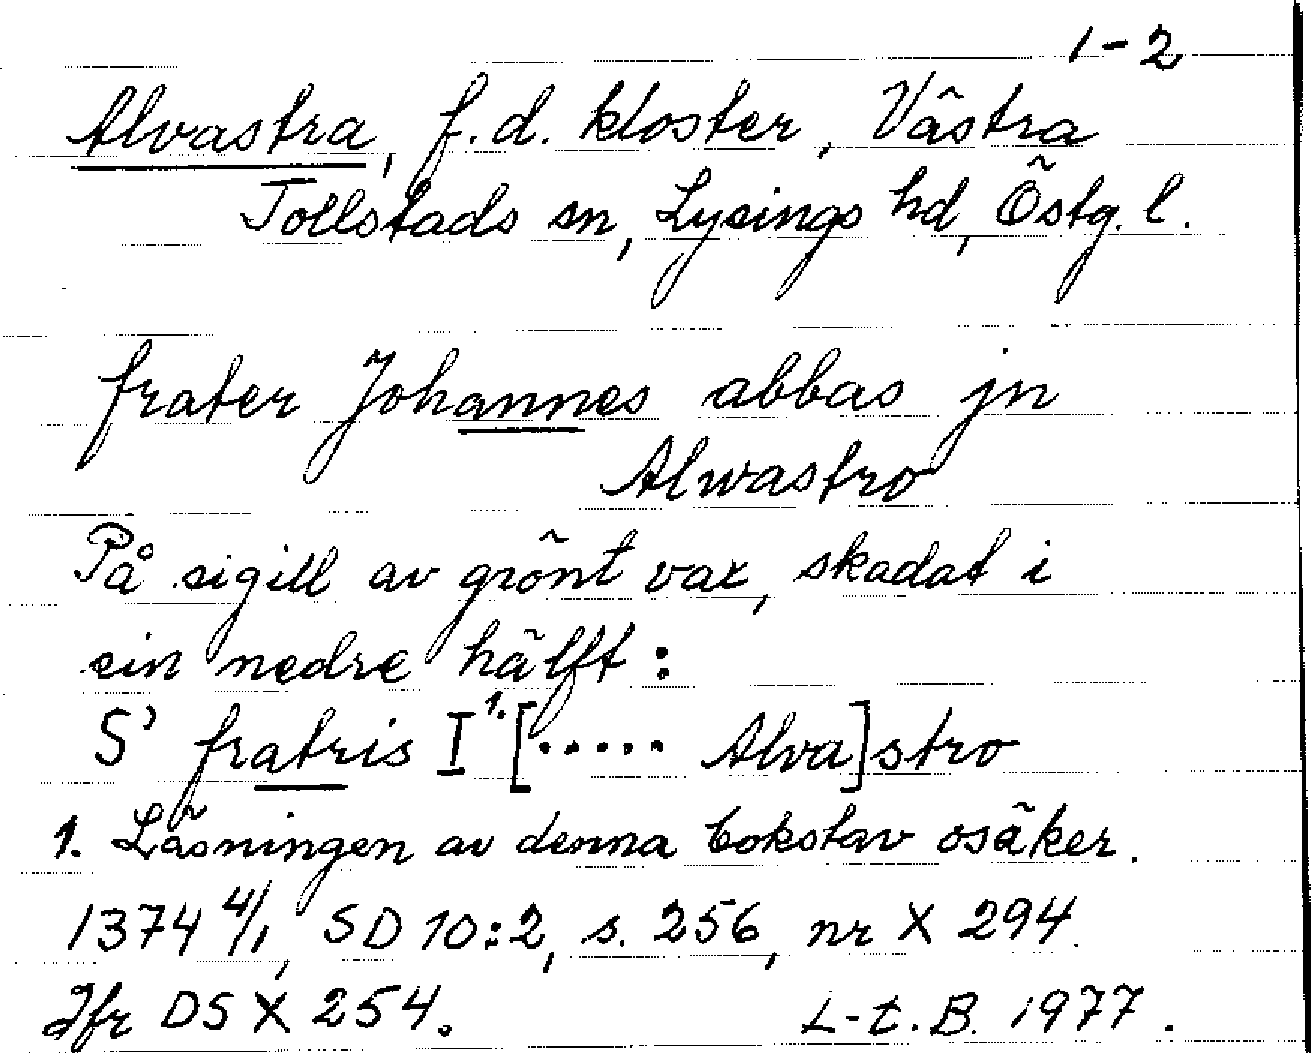 1-2
Alvastra, f.d. kloster, Västra
Tollstads sn, Lysings hd, Östg. l.
frater Johannes abbas jn
Alwastro
På sigill av grönt vax, skadat i
sin nedre hälft:
S' fratris I¹·[..... Alva]stro
1. Läsningen av denna bokstav osäker.
1374 4/1, SD 10:2, s. 256, nr X 294.
Jfr DS X 254. L-t.B. 1977.